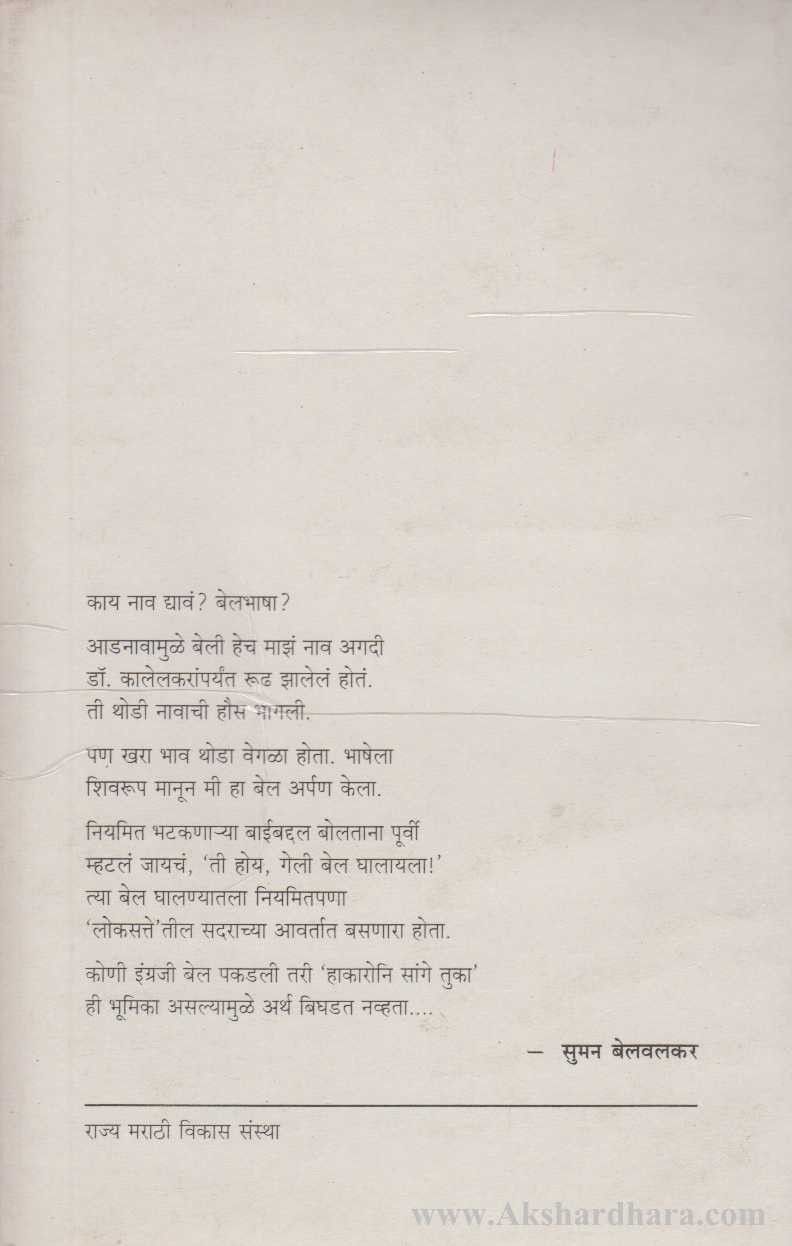 काय नाव द्यावं? बेलभाषा?
आडनावामुळे बेली हेच माझं नाव अगदी
डॉ. कालेलकरांपर्यंत रूढ झालेलं होतं.
ती थोडी नावाची हौस भागली.
पण खरा भाव थोडा वेगळा होता. भाषेला
शिवरूप मानून मी हा बेल अर्पण केला.
नियमित भटकणाऱ्या बाईबद्दल बोलताना पूर्वी
म्हटलं जायचं, ‘ती होय, गेली बेल घालायला!’
त्या बेल घालण्यातला नियमितपणा
‘लोकसत्ते’तील सदराच्या आवर्तात बसणारा होता.
कोणी इंग्रजी बेल पकडली तरी ‘हाकारोनि सांगे तुका’
ही भूमिका असल्यामुळे अर्थ बिघडत नव्हता....
– सुमन बेलवलकर
राज्य मराठी विकास संस्था
www.Akshardhara.com